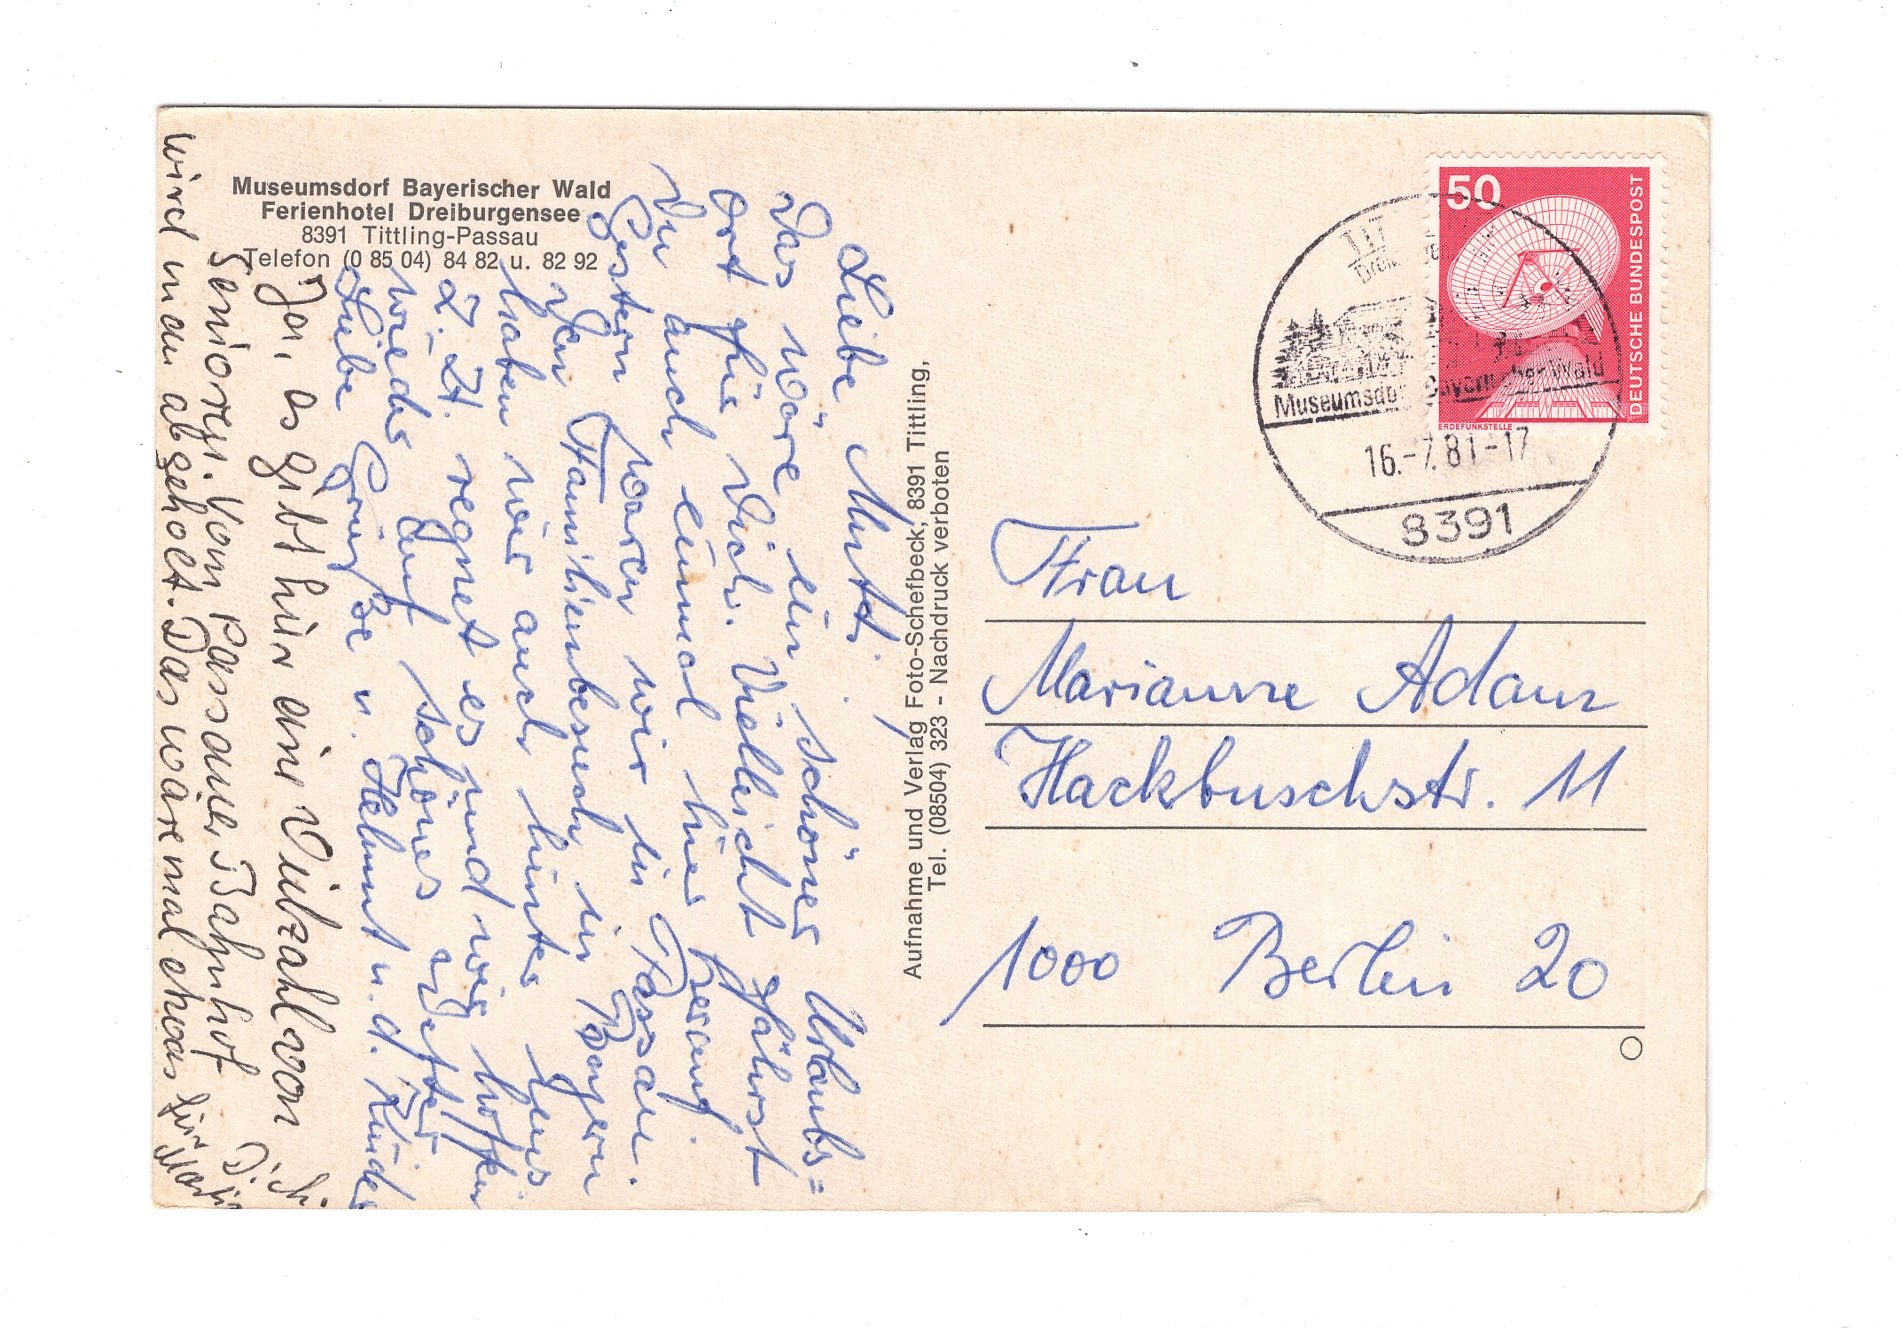 Museumsdorf Bayerischer Wald
Ferienhotel Dreiburgensee
8391 Tittling-Passau
Telefon (0 85 04) 84 82 u. 82 92
Liebe Mutti.
Das wäre ein schöner Urlaubs=
ort für Dich. Vielleicht fährst
Du auch einmal hier herauf
Gestern waren wir in Passau.
Den Familienbesuch in Bayern
haben wir auch hinter uns.
Z. Zt. regnet es und wir hoffen
wieder auf schönes Wetter
Liebe Grüße u. Helmut u. d. Kinder
Ja, es gibt hier eine Vielzahl von
Senioren. Vom Passauer Bahnhof
wird man abgeholt. Das wäre mal etwas für
Dich
Aufnahme und Verlag Foto-Schefbeck, 8391 Tittling,
Tel. (08504) 323 - Nachdruck verboten
50
DEUTSCHE BUNDESPOST
ERDEFUNKSTELLE
Museumsdorf Bayerischer Wald
16.-7.81-17
8391
Frau
Marianne Adam
Hackbuschstr. 11
1000 Berlin 20